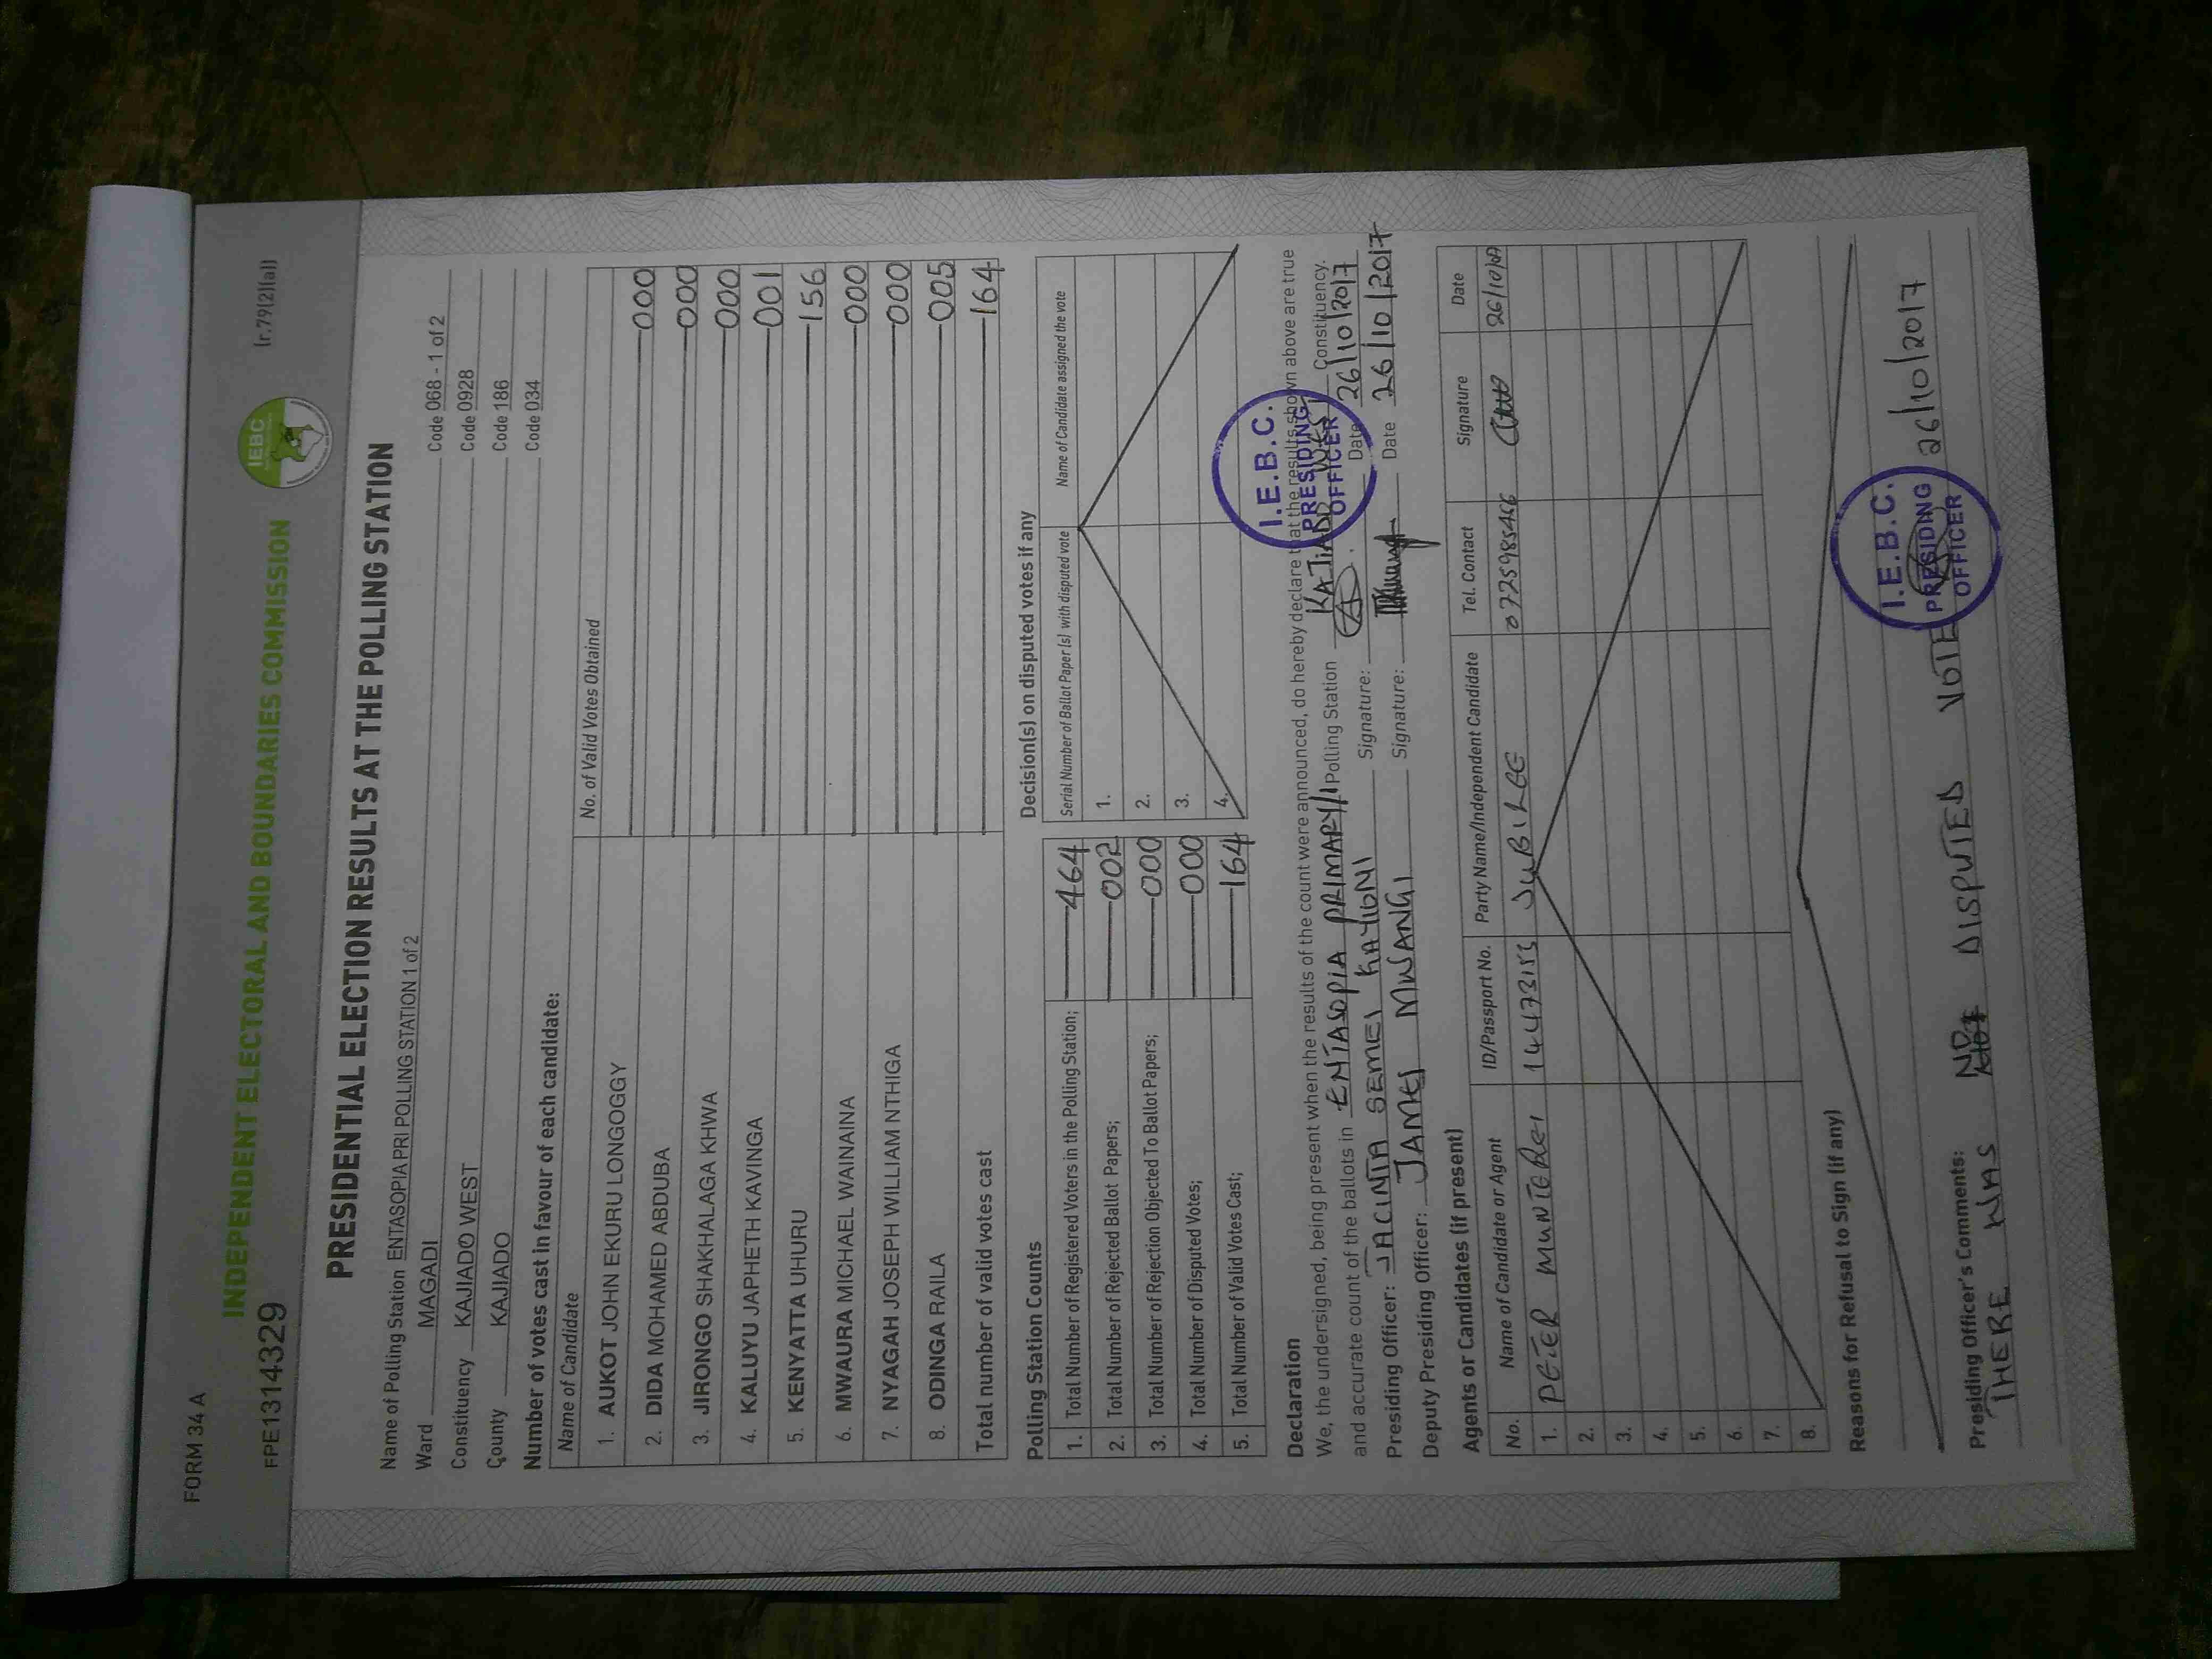 FORM 34 A
(r.79(2)(a))
INDEPENDENT ELECTORAL AND BOUNDARIES COMMISSION
IEBC
FPE1314329
PRESIDENTIAL ELECTION RESULTS AT THE POLLING STATION
Name of Polling Station ENTASOPIA PRI POLLING STATION 1 of 2 Code 068 - 1 of 2
Ward MAGADI Code 0928
Constituency KAJIADO WEST Code 186
County KAJIADO Code 034
Number of votes cast in favour of each candidate:
Name of Candidate No. of Valid Votes Obtained
1. AUKOT JOHN EKURU LONGOGGY 000
2. DIDA MOHAMED ABDUBA 000
3. JIRONGO SHAKHALAGA KHWA 000
4. KALUYU JAPHETH KAVINGA 001
5. KENYATTA UHURU 156
6. MWAURA MICHAEL WAINAINA 000
7. NYAGAH JOSEPH WILLIAM NTHIGA 000
8. ODINGA RAILA 005
Total number of valid votes cast 164
Polling Station Counts
1. Total Number of Registered Voters in the Polling Station; 464
2. Total Number of Rejected Ballot Papers; 002
3. Total Number of Rejection Objected To Ballot Papers; 000
4. Total Number of Disputed Votes; 000
5. Total Number of Valid Votes Cast; 164
Decision(s) on disputed votes if any
Serial Number of Ballot Paper (s) with disputed vote Name of Candidate assigned the vote
1.
2.
3.
4.
Declaration
We, the undersigned, being present when the results of the count were announced, do hereby declare that the results shown above are true
and accurate count of the ballots in ENTASOPIA PRIMARY/1 Polling Station KAJIADO WEST Constituency.
Presiding Officer: JACINTA SEMEI KATIONI Signature: Date 26/10/2017
Deputy Presiding Officer: JAMES MWANGI Signature: Date 26/10/2017
I.E.B.C.
PRESIDING
OFFICER
Agents or Candidates (if present)
No. Name of Candidate or Agent ID/Passport No. Party Name/Independent Candidate Tel. Contact Signature Date
1. PETER 14473155 JUBILEE 0725985466
2.
3.
4.
5.
6.
7.
8.
Reasons for Refusal to Sign (if any)
Presiding Officer's Comments:
THERE WAS NO DISPUTED VOTE 26/10/2017
I.E.B.C.
PRESIDING
OFFICER